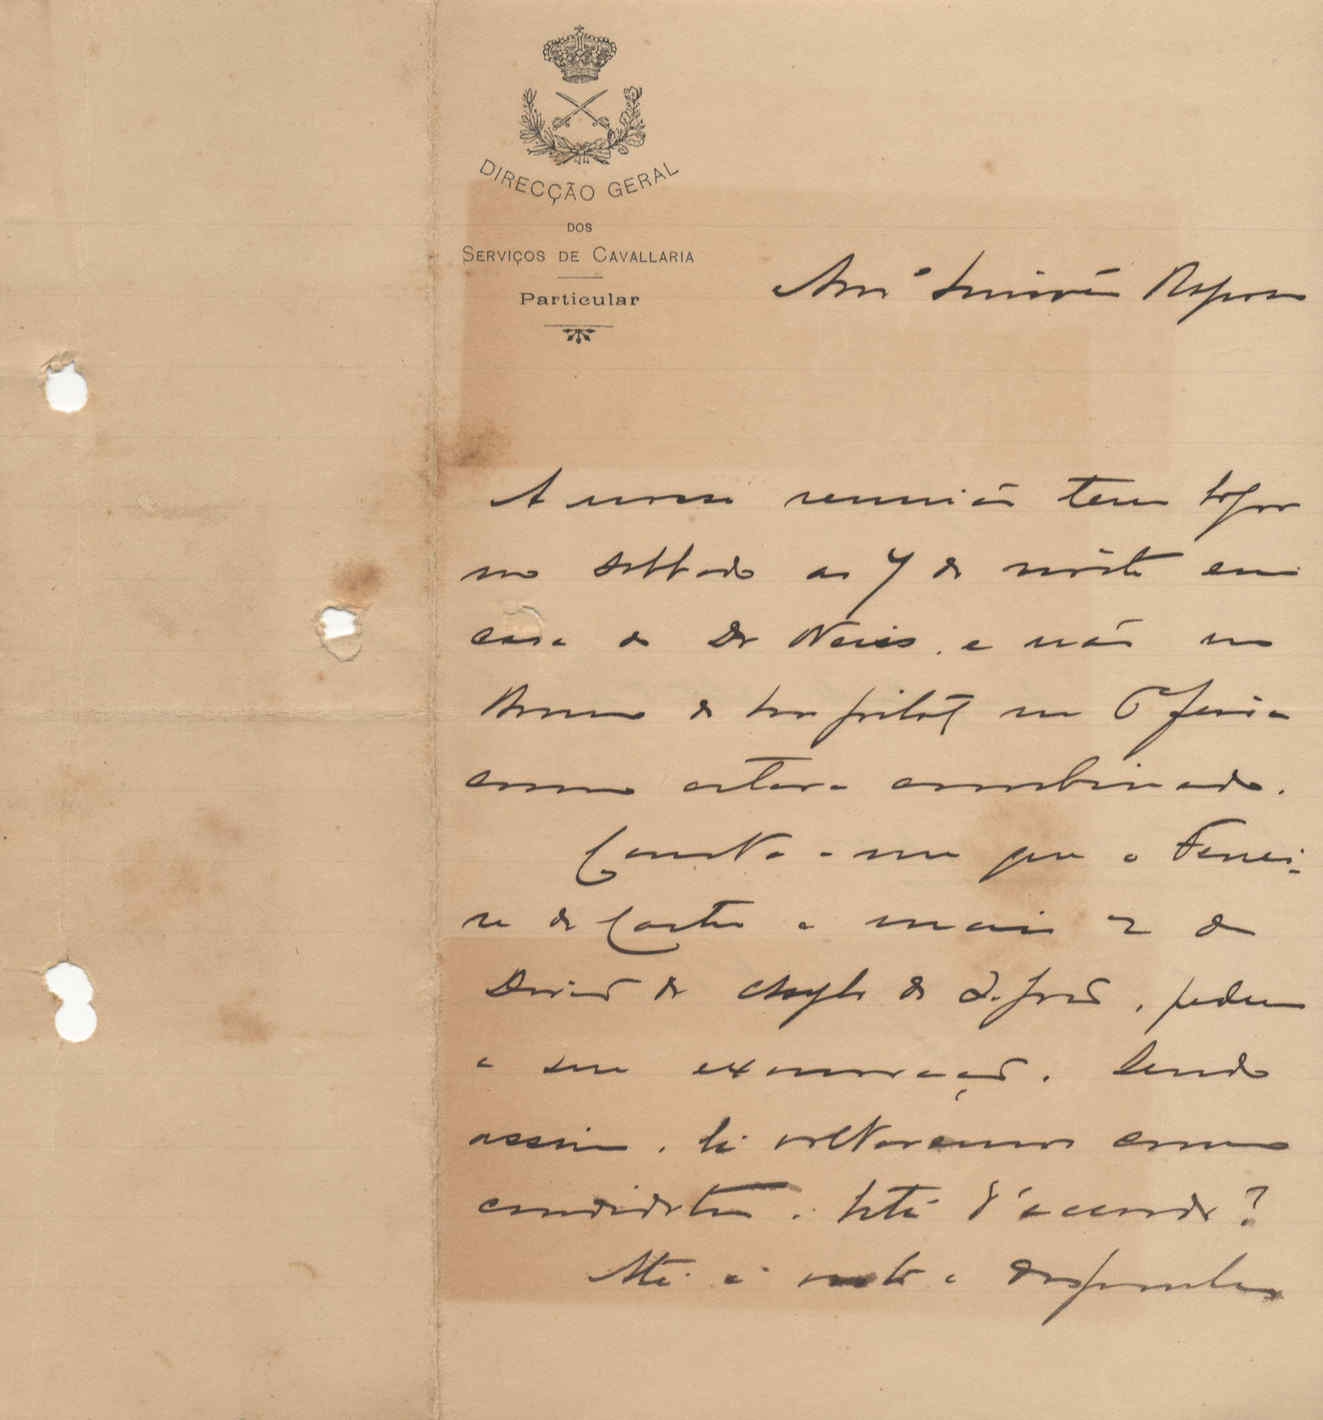 DIRECÇÃO GERAL
DOS
SERVIÇOS DE CAVALLARIA
Particular
Am.º Simões Raposo
A nossa reunião tem logar
no sabbado as 7 da noite em
casa do Dr Neves, e não no
Banco do hospital na 6ª feira
como estava combinado.
Consta-me que o Ferrei-
ra de Castro e mais 2 da
Direcão do Asylo de S. João, pedem
a sua exoneração. Sendo
assim, lá voltaremos como
candidatos. Está d'accordo?
Até á vista e desponha